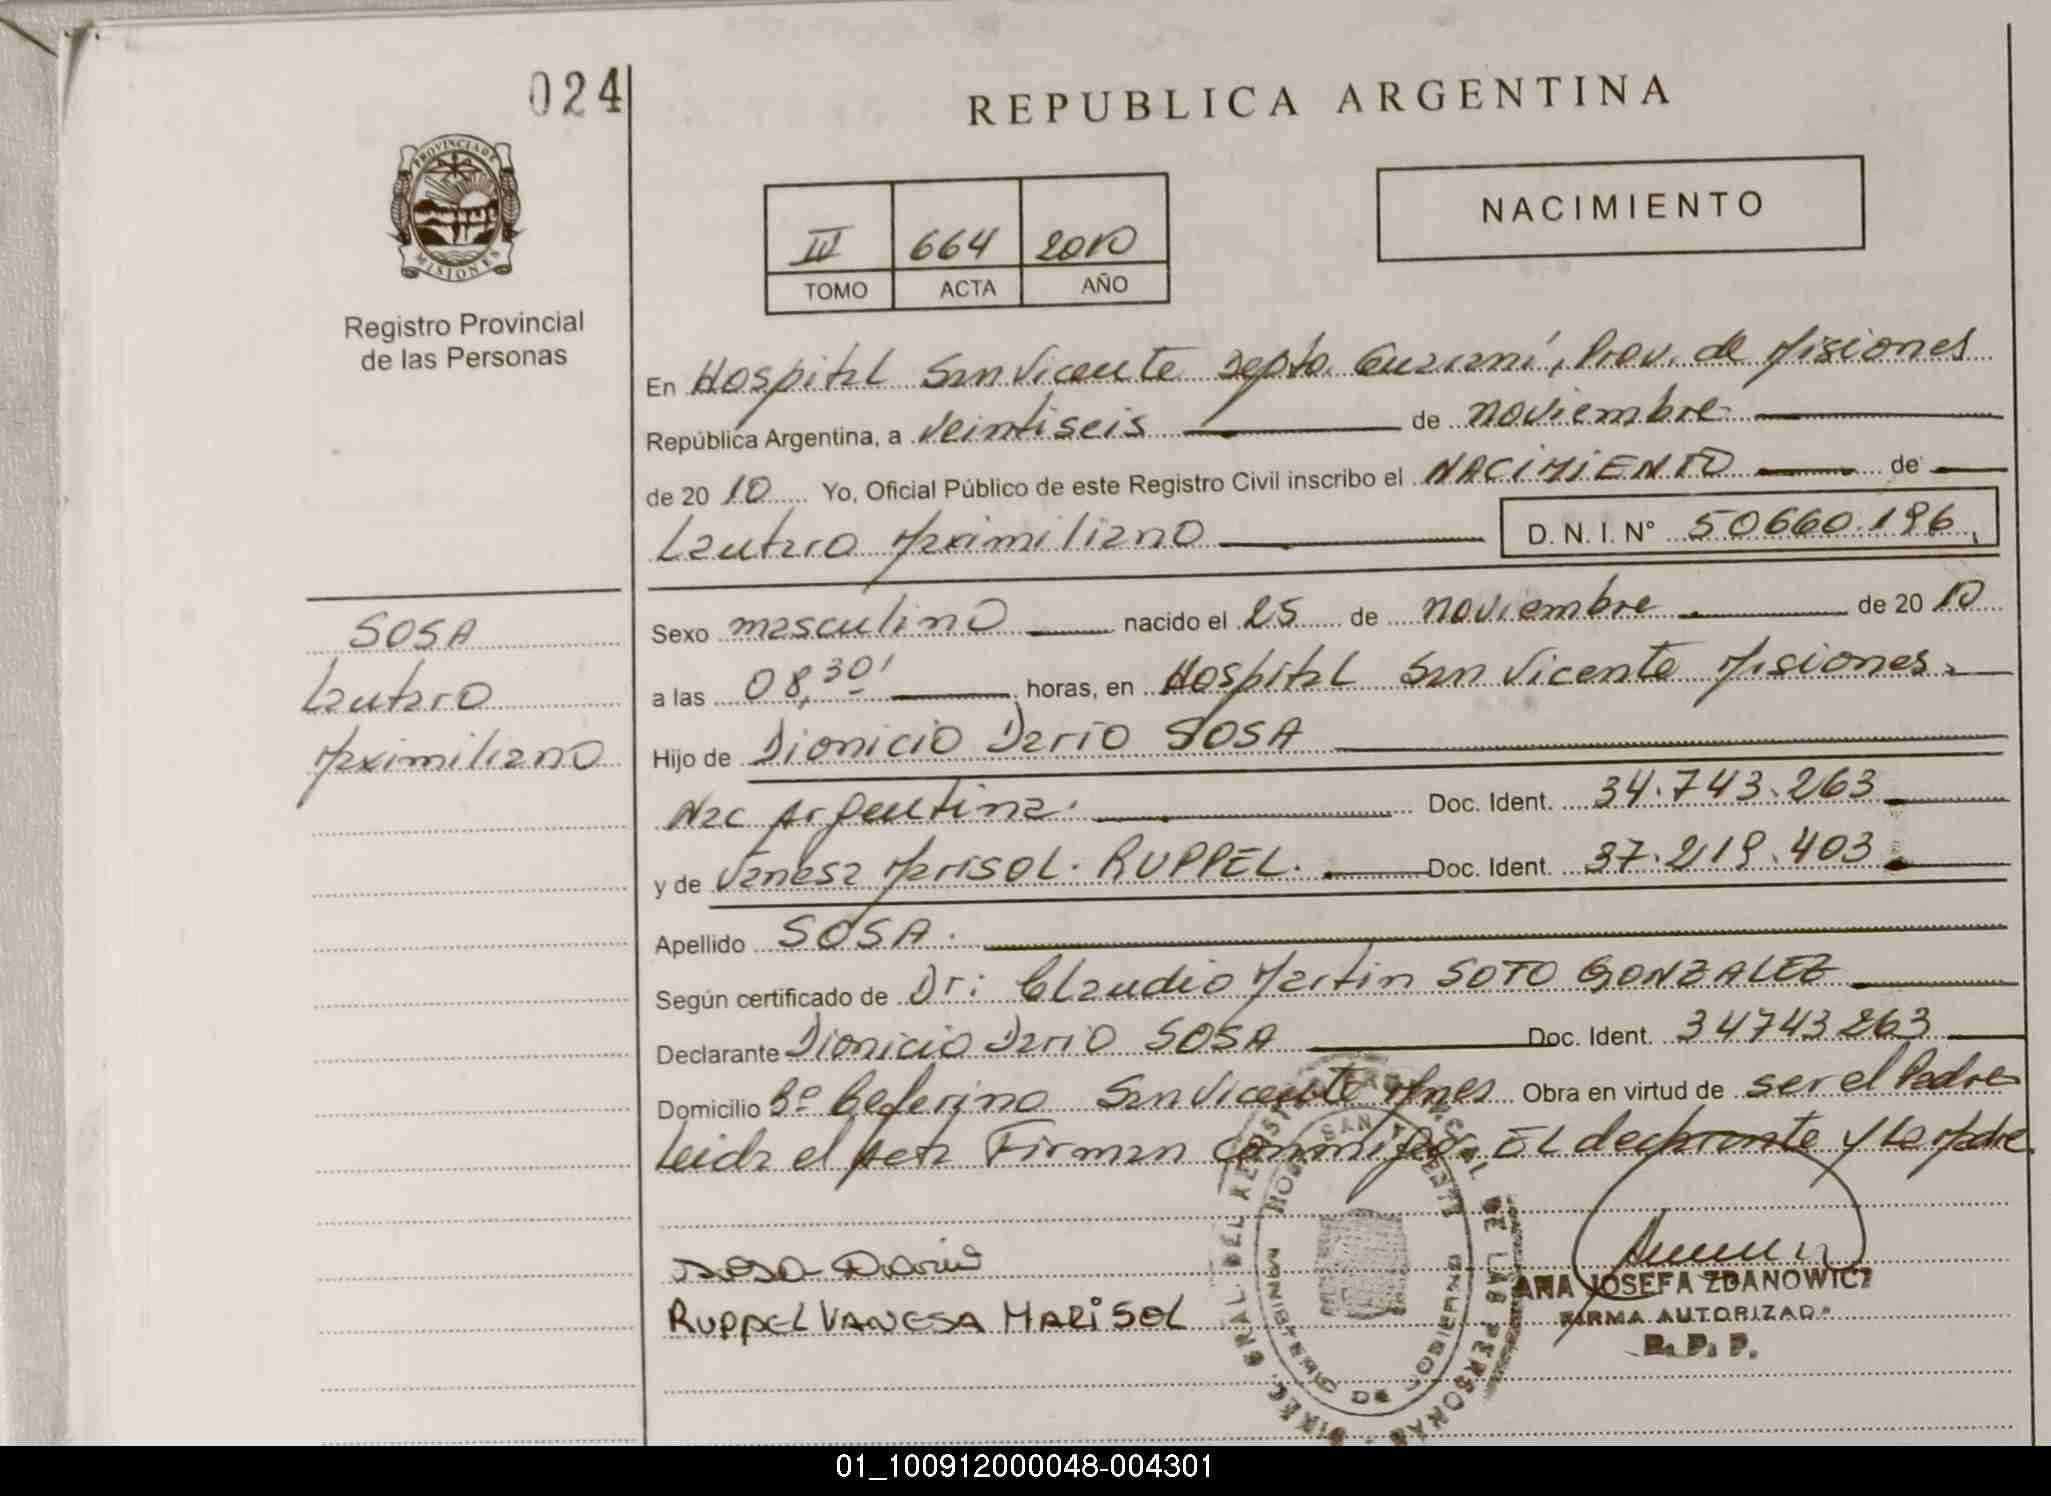 024
REPUBLICA ARGENTINA
PROVINCIA DE
MISIONES
Registro Provincial
de las Personas
NACIMIENTO
III 664 2010
TOMO ACTA AÑO
En Hospital San Vicente Depto. Guaraní, Prov. de Misiones
República Argentina, a veintiseis de noviembre
de 20 10 Yo, Oficial Público de este Registro Civil inscribo el NACIMIENTO de
Lautaro Maximiliano D. N. I. N° 50660.196
SOSA
Lautaro
Maximiliano
Sexo masculino nacido el 25 de noviembre de 20 10
a las 08,30' horas, en Hospital San Vicente Misiones
Hijo de Dionicio Dario SOSA
Nac Argentina. Doc. Ident. 34.743.263
y de Vanesa Marisol. RUPPEL. Doc. Ident. 37.219.403
Apellido SOSA.
Según certificado de Dr: Claudio Martin SOTO GONZALEZ
Declarante Dionicio Dario SOSA Doc. Ident. 34743263
Domicilio Bº Ceferino San Vicente Mnes Obra en virtud de ser el Padre
Leida el Acta Firman conmigo. El declarante y La Madre
SOSA Dario
RUPPEL VANESA MARISOL
ANA JOSEFA ZDANOWICZ
FIRMA AUTORIZADA
R. P. P.
DIREC. GRAL. DEL REGISTRO PROVINCIAL DE LAS PERSONAS
HOSP. SAN VICENTE
MINISTERIO DE GOBIERNO
01_100912000048-004301